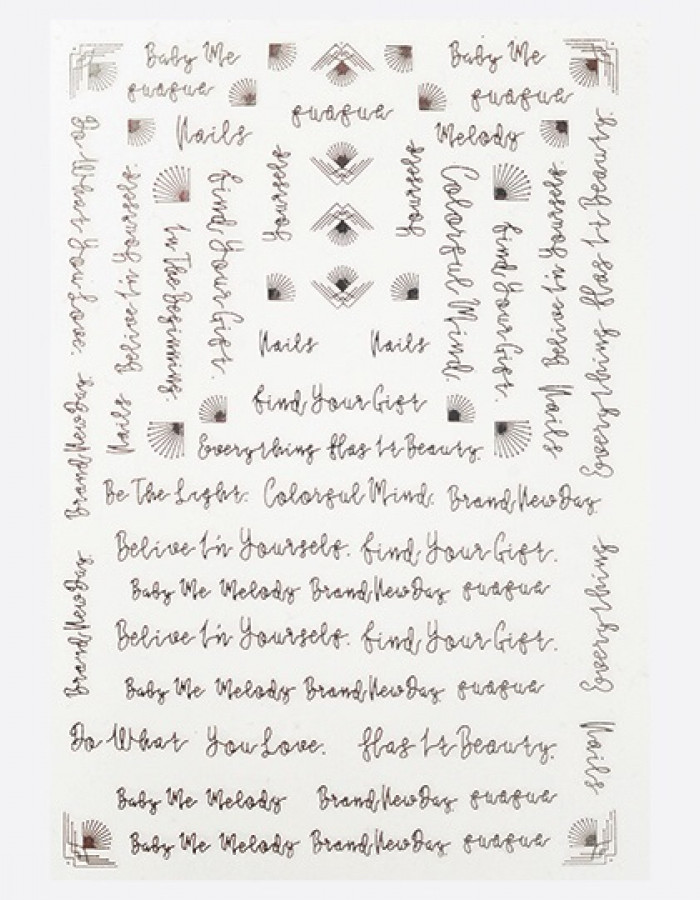 Baby Me
Baby Me
Nails
Melody
Do What You Love.
Belive In Yourself.
In The Beginning
Find Your Gift.
Yourself
Yourself
Colorful Mind.
Find Your Gift.
Belive In Yourself.
Everything Has It Beauty.
Nails
Nails
Brand New Day.
Nails
Nails
Find Your Gift
Everything Has It Beauty.
Be The Light. Colorful Mind. Brand New Day
Belive In Yourself. Find Your Gift.
Baby Me Melody Brand New Day
Brand New Day.
Everything
Belive In Yourself. Find Your Gift.
Baby Me Melody Brand New Day
Do What You Love. Has It Beauty.
Nails
Baby Me Melody Brand New Day
Baby Me Melody Brand New Day